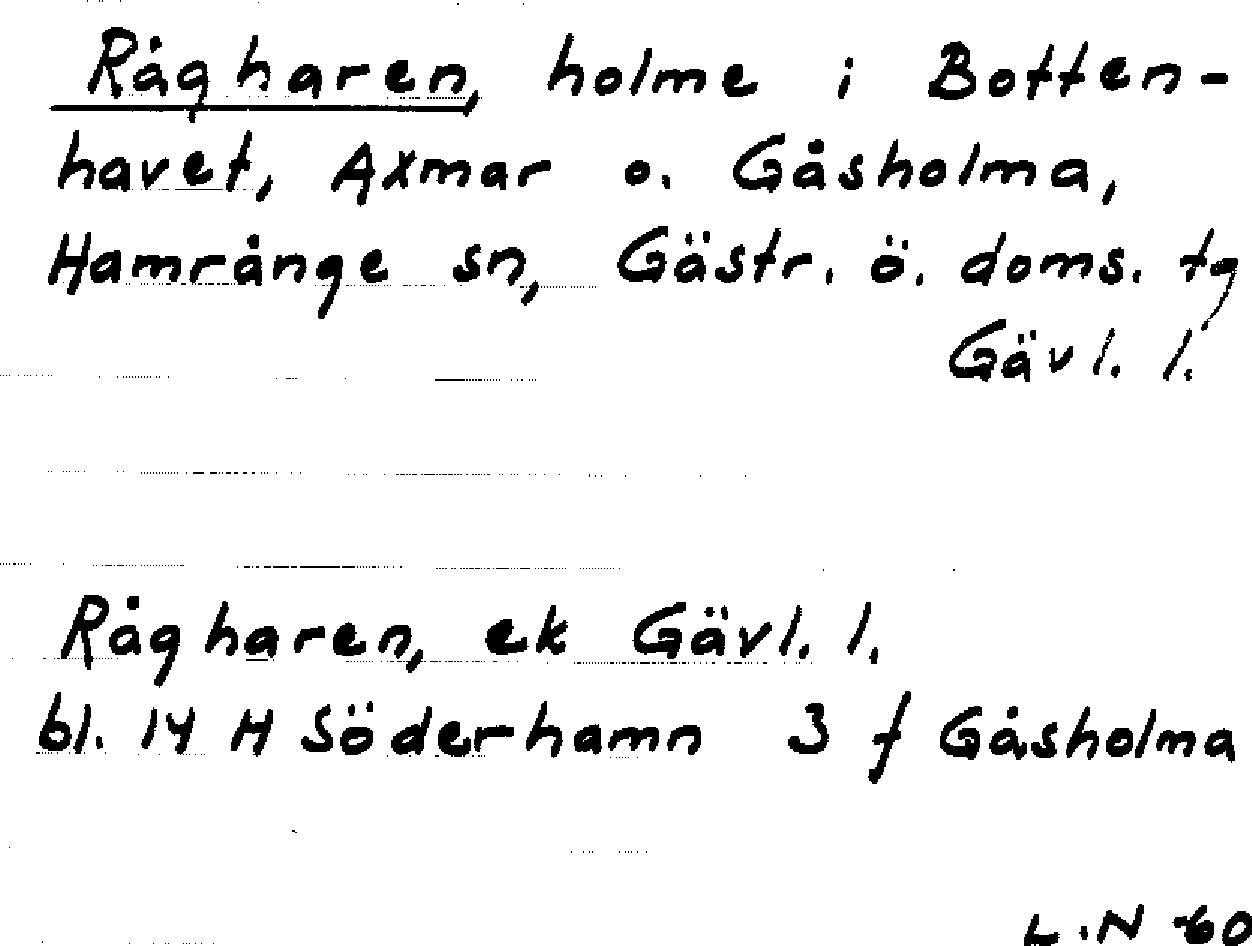 Rågharen, holme i Botten-
havet, Axmar o. Gåsholma,
Hamrånge sn, Gästr. ö. doms. tg
Gävl. l.
Rågharen, ek Gävl. l.
bl. 14 H Söderhamn 3 f Gåsholma
L.N -60